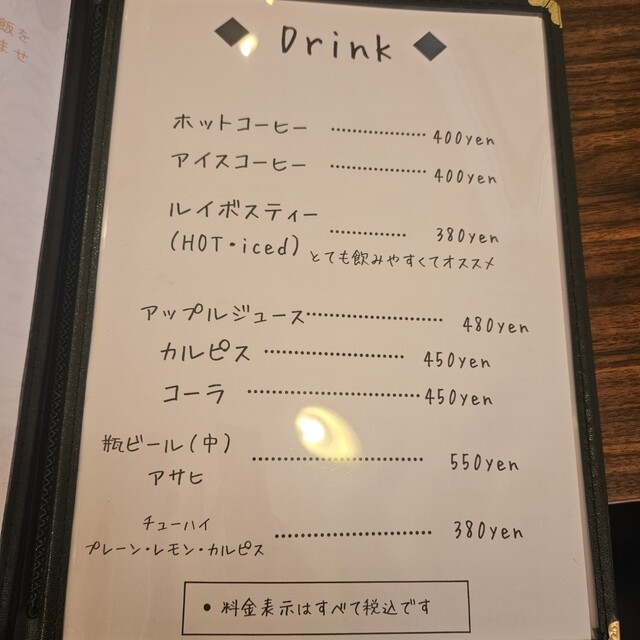 飯を
ませ
◆ Drink ◆
ホットコーヒー ・・・・・・・・・・・・・・・・・ 400yen
アイスコーヒー ・・・・・・・・・・・・・・・・・ 400yen
ルイボスティー
(HOT・iced) ・・・・・・・・・・・・・ 380yen
とても飲みやすくてオススメ
アップルジュース・・・・・・・・・・・・・・・・・・・・・・・ 480yen
カルピス ・・・・・・・・・・・・・・・・・・・・・・・ 450yen
コーラ ・・・・・・・・・・・・・・・・・・・・・・・・・・・・ 450yen
瓶ビール(中)
アサヒ ・・・・・・・・・・・・・・・・・・・・・・・・ 550yen
チューハイ
プレーン・レモン・カルピス ・・・・・・・・・・・・・・・・・・・・・・ 380yen
• 料金表示はすべて税込です